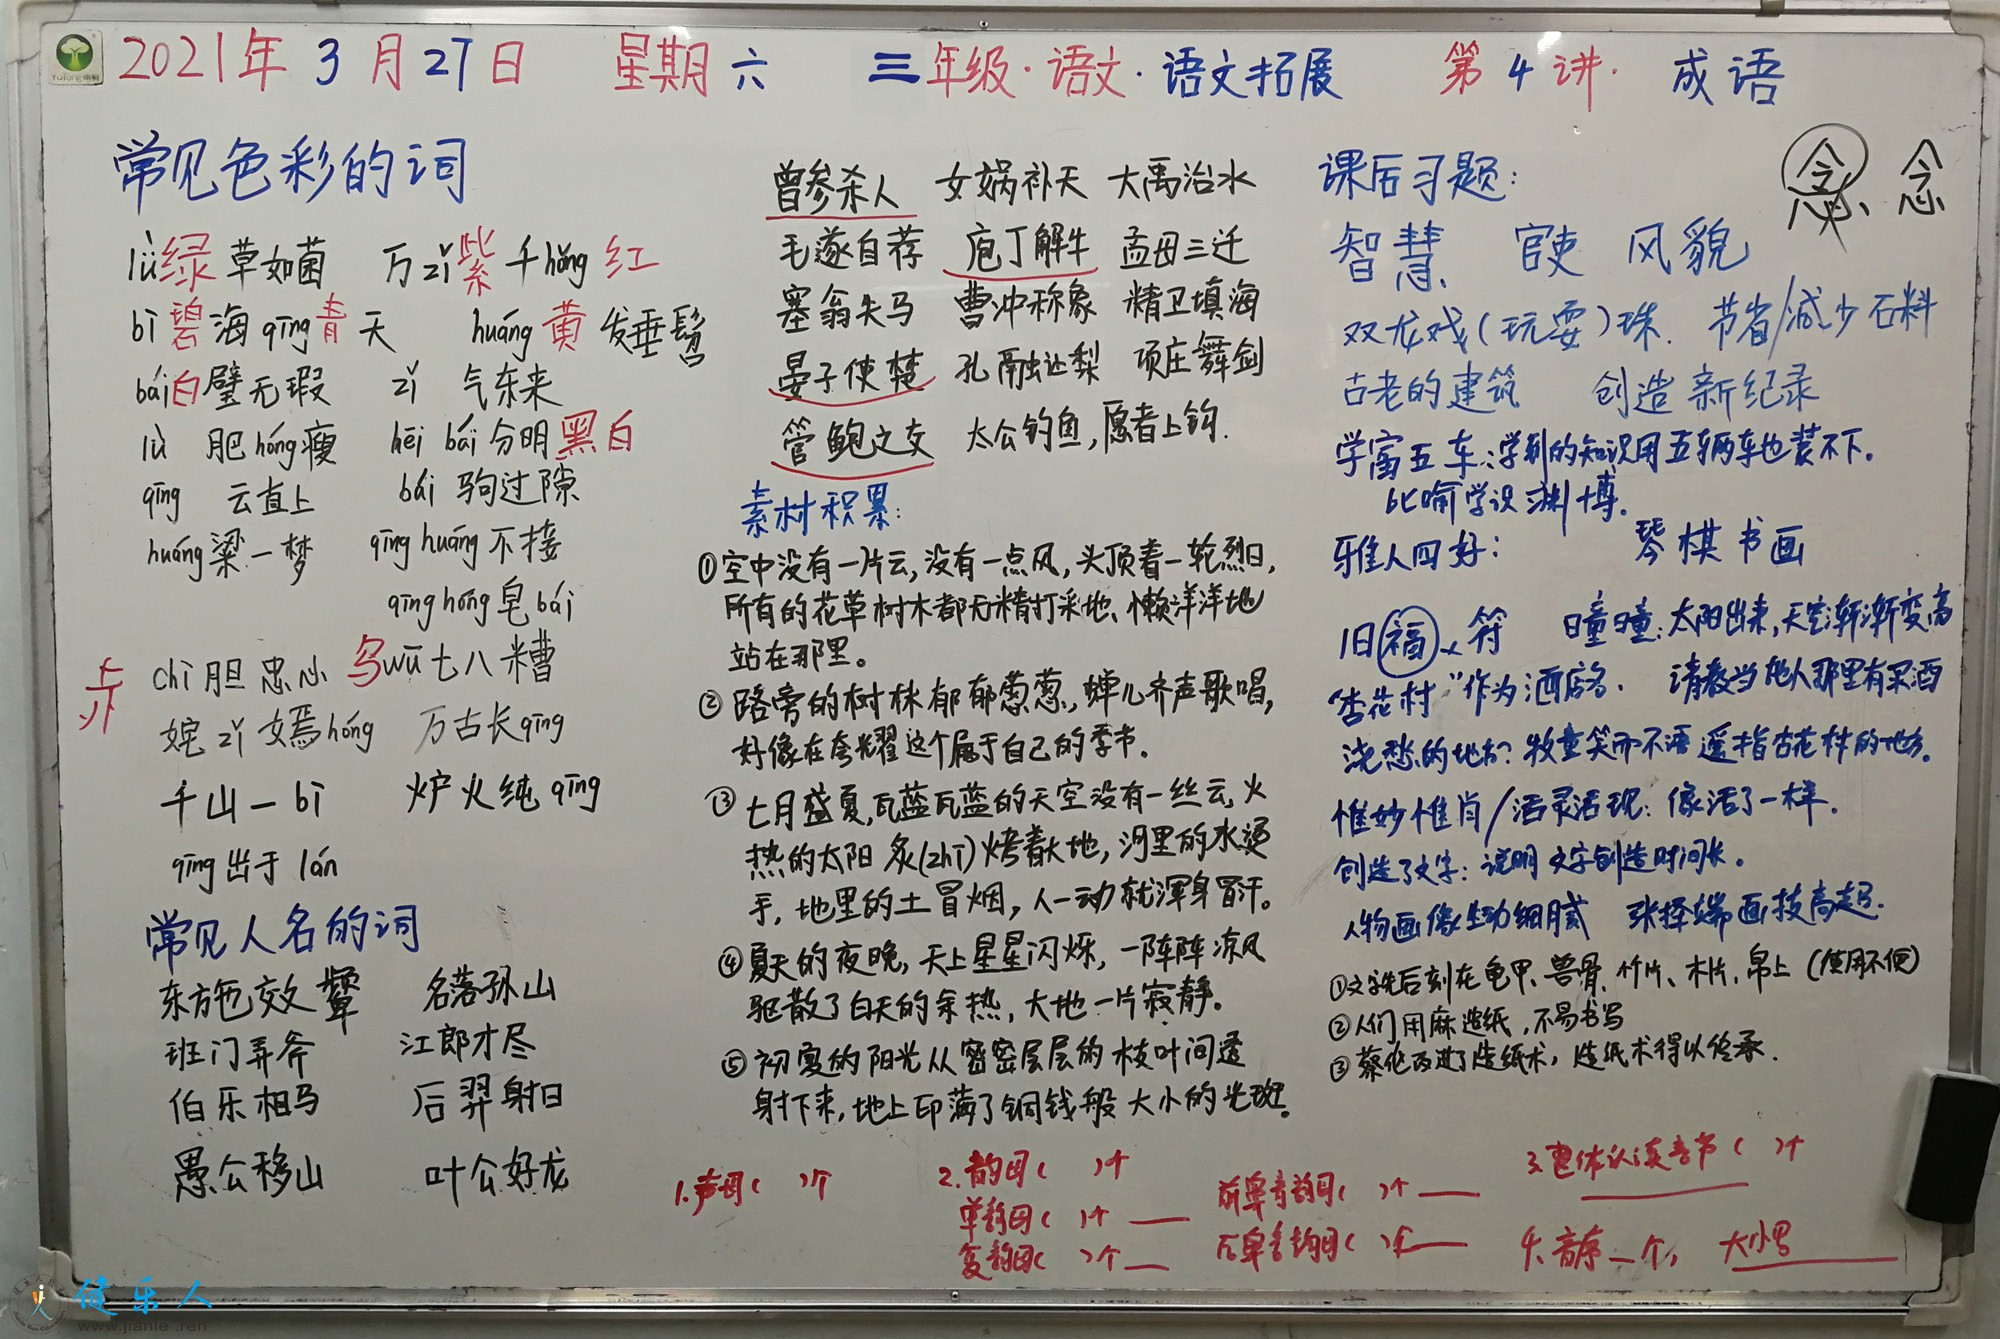 2021年 3月27日 星期六 三年级·语文·语文拓展 第4讲· 成语
常见色彩的词
lǜ绿草如茵 万zǐ紫千hóng红
bì碧海qīng青天 huáng黄发垂髫
bái白璧无瑕 zǐ 气东来
lǜ 肥hóng瘦 hēi bái分明黑白
qīng 云直上 bái 驹过隙
huáng粱一梦 qīng huáng不接
qīng hóng皂bái
chì胆忠心 乌wū七八糟
姹zǐ嫣hóng 万古长qīng
千山一bì 炉火纯qīng
qīng出于lán
常见人名的词
东施效颦 名落孙山
班门弄斧 江郎才尽
伯乐相马 后羿射日
愚公移山 叶公好龙
曾参杀人 女娲补天 大禹治水
毛遂自荐 庖丁解牛 孟母三迁
塞翁失马 曹冲称象 精卫填海
晏子使楚 孔融让梨 项庄舞剑
管鲍之交 太公钓鱼,愿者上钩.
素材积累:
①空中没有一片云,没有一点风,头顶着一轮烈日,
所有的花草树木都无精打采地、懒洋洋地
站在那里。
②路旁的树林郁郁葱葱,蝉儿齐声歌唱,
好像在夸耀这个属于自己的季节.
③七月盛夏,瓦蓝瓦蓝的天空没有一丝云,火
热的太阳炙(zhì)烤着大地,河里的水烫
手,地里的土冒烟,人一动就浑身冒汗。
④夏天的夜晚,天上星星闪烁,一阵阵凉风
驱散了白天的余热,大地一片寂静。
⑤初夏的阳光从密密层层的枝叶间透
射下来,地上印满了铜钱般大小的光斑。
课后习题:
念 念
智慧 官吏 风貌
双龙戏(玩耍)珠. 节省/减少石料
古老的建筑 创造新纪录
学富五车:学到的知识用五辆车也装不下.
比喻学识渊博.
雅人四好: 琴棋书画
旧福、符 曈曈:太阳出来,天空渐渐变高
杏花村”作为酒店名. 请教当地人那里有买酒
浇愁的地方? 牧童笑而不语遥指杏花村的地方.
惟妙惟肖/活灵活现:像活了一样.
创造了文字:说明文字创造时间长.
人物画像生动细腻 张择端画技高超.
①文字先后刻在龟甲、兽骨、竹片、木片、帛上(使用不便)
②人们用麻造纸,不易书写
③蔡伦改进了造纸术,造纸术得以传承.
1.声母( )个
2.韵母( )个
单韵母( )个
复韵母( )个
前鼻音韵母( )个
后鼻音韵母( )个
3.整体认读音节( )个
4.音序 个, 大小写
健乐人
www.jianle.ren